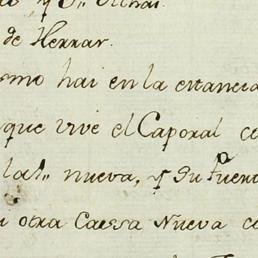 de Herrar.
smo hai en la estancia
que vive el Caporal co
nueva, y su Puert
otra Cassa Nueva co